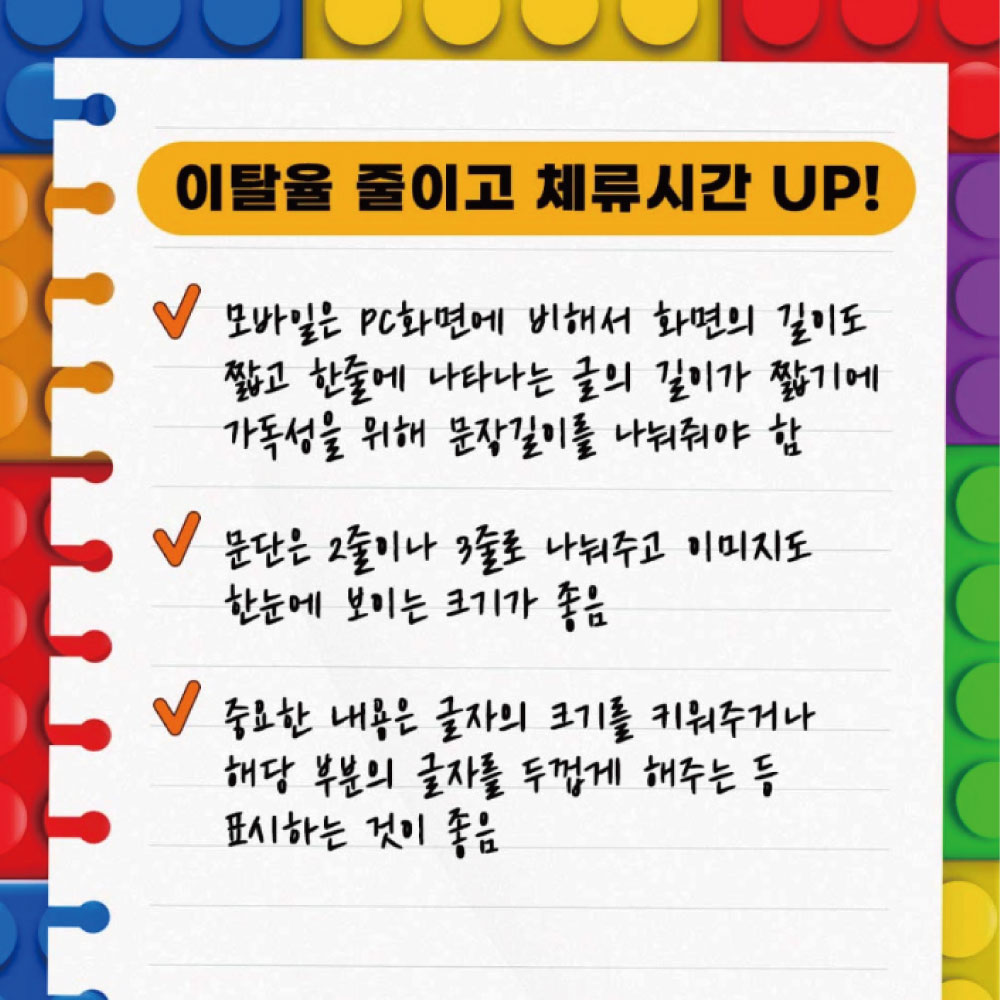 이탈율 줄이고 체류시간 UP!
모바일은 PC화면에 비해서 화면의 길이도
짧고 한줄에 나타나는 글의 길이가 짧기에
가독성을 위해 문장길이를 나눠줘야 함
문단은 2줄이나 3줄로 나눠주고 이미지도
한눈에 보이는 크기가 좋음
중요한 내용은 글자의 크기를 키워주거나
해당 부분의 글자를 두껍게 해주는 등
표시하는 것이 좋음